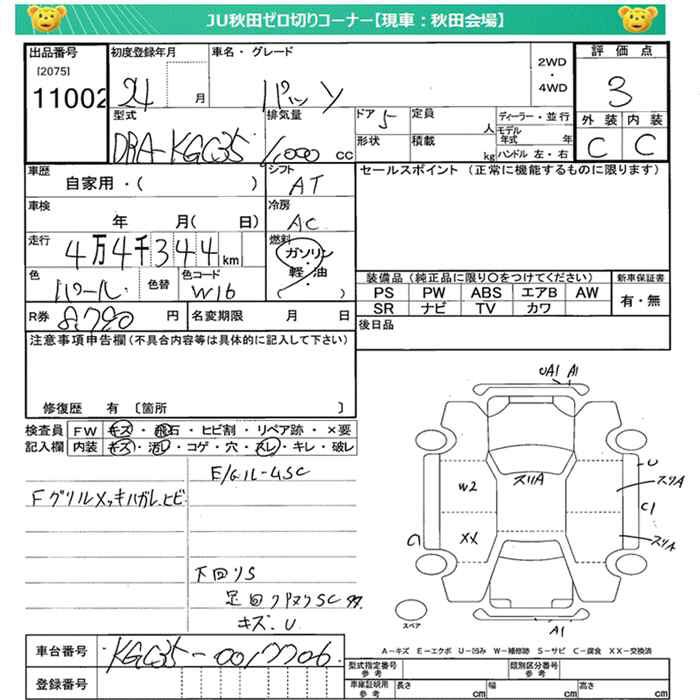 JU秋田ゼロ切りコーナー【現車：秋田会場】
出品番号 初度登録年月 車名・グレード 2WD ・ 4WD 評価点
[2075]
11002 24 月 パッソ 3
型式 排気量 ドア 5 定員 人 ディーラー・並行 外装 内装
DBA-KGC35 1,000 cc 形状 積載 kg モデル年式 年 ハンドル 左・右 C C
車歴 シフト セールスポイント (正常に機能するものに限ります)
自家用・( ) AT
車検 冷房
年 月( 日) AC
走行 燃料
4万4千344km ガソリン
軽・油
( )
色 色替 色コード 装備品 (純正品に限り〇をつけてください) 新車保証書
パール W16 PS PW ABS エアB AW 有・無
SR ナビ TV カワ
R券 8,790 円 名変期限 月 日 後日品
注意事項申告欄 (不具合内容等は具体的に記入して下さい)
修復歴 有 〔箇所 〕
検査員 FW キズ・飛石・ヒビ割・リペア跡・×要
記入欄 内装 キズ・汚レ・コゲ・穴・スレ・キレ・破レ
E/Gオイル-ムSC
Fグリルメッキハガレ、ヒビ
下回りS
足回
SC
キズ.U
UA1 A1
U
W2 スリA スリA
C1
C1 XX スリA
スペア
A1
A-キズ E-エクボ U-凹み W-補修跡 S-サビ C-腐食 XX-交換済
車台番号 KGC35-0017706
型式指定番号 参考 類別区分番号 参考
登録番号 車庫証明用 参考 長さ cm 幅 cm 高さ cm